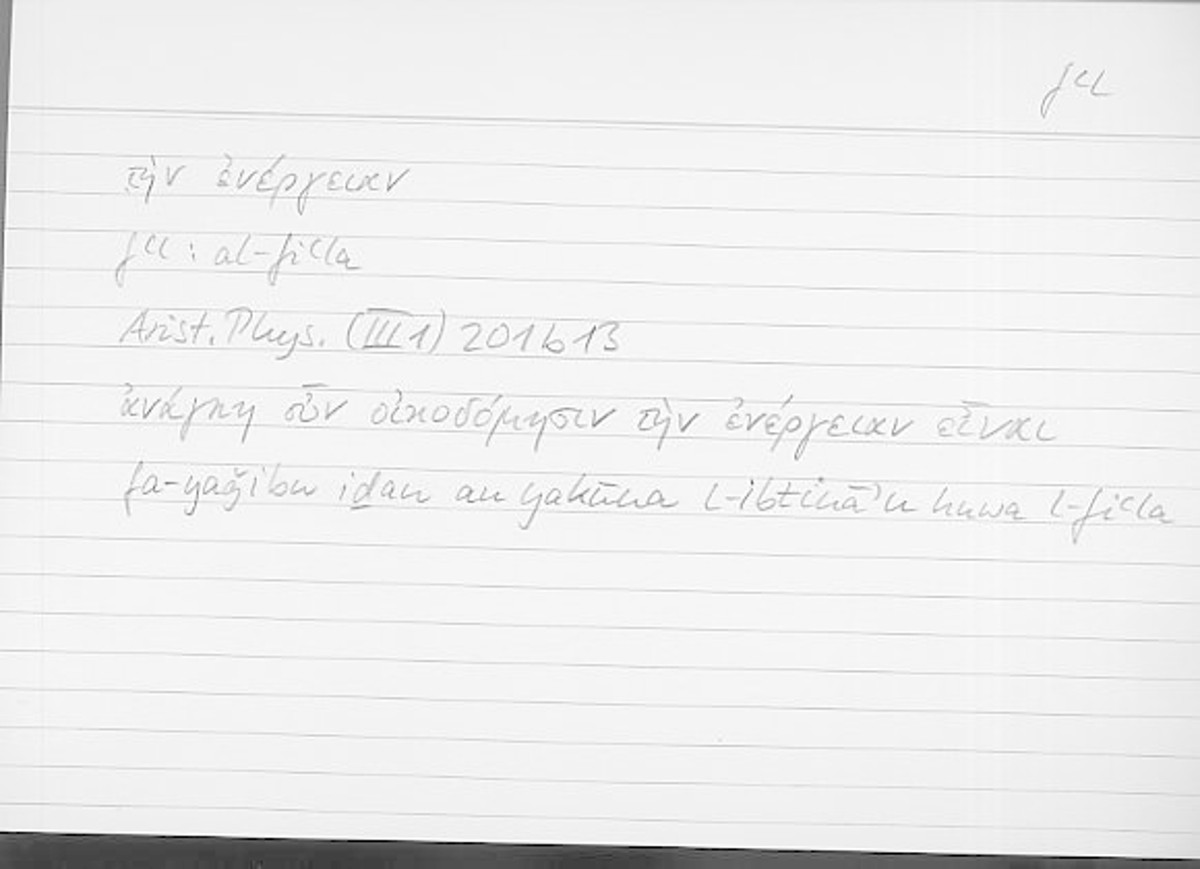 fʿl
τὴν ἐνέργειαν
fʿl : al-fiʿla
Arist. Phys. (III 1) 201b13
ἀνάγκη οὖν οἰκοδόμησιν τὴν ἐνέργειαν εἶναι
fa-yaǧibu iḏan an yakūna l-ibtināʾu huwa l-fiʿla